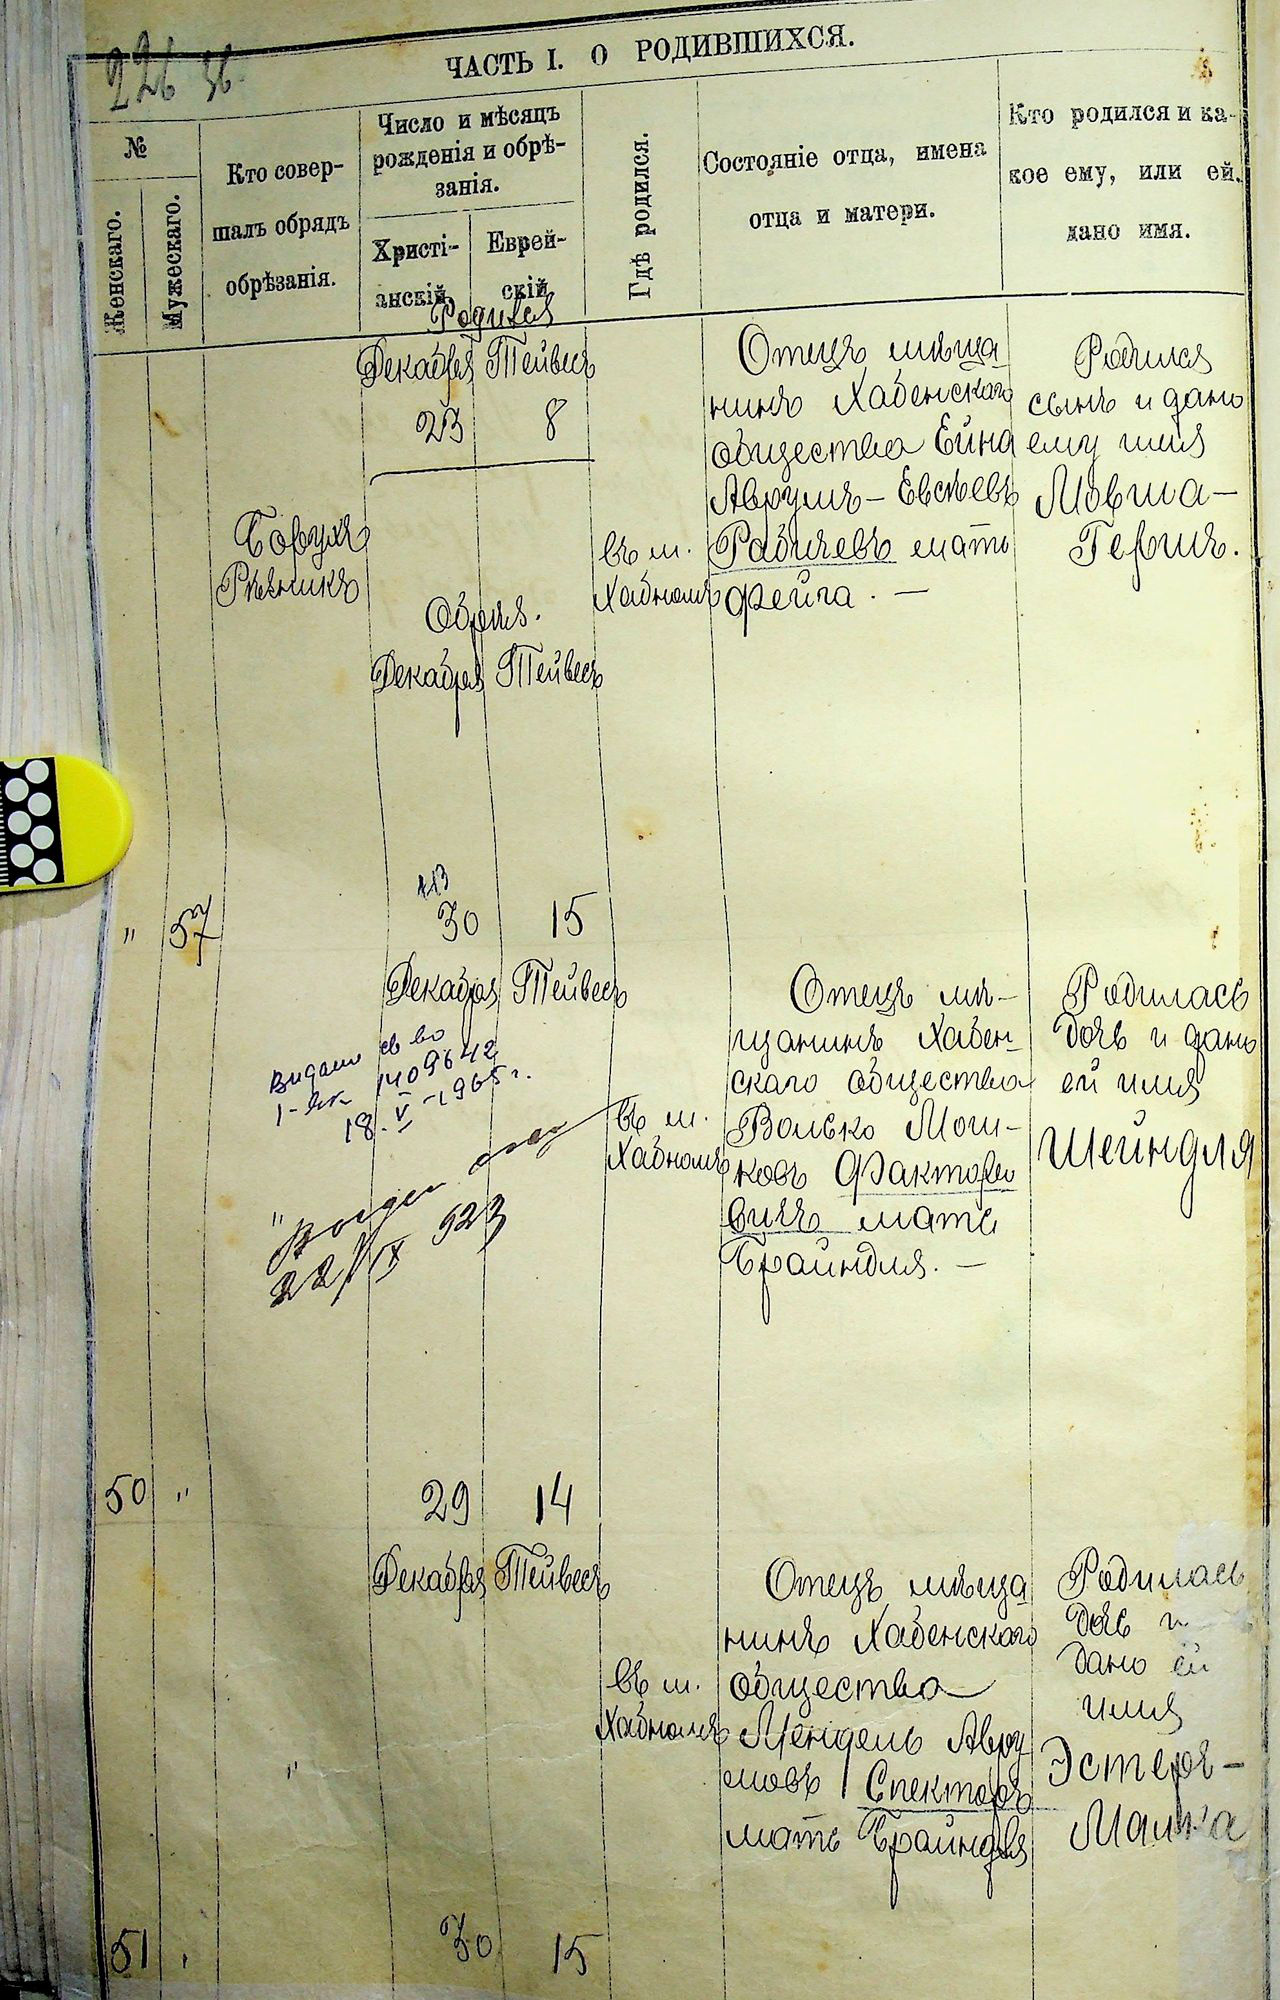 226 56.
ЧАСТЬ I. О РОДИВШИХСЯ.
№
Женскаго.
Мужескаго.
Кто совер-
шалъ обрядъ
обрѣзанія.
Число и мѣсяцъ
рожденія и обрѣ-
занія.
Христі-
анскій.
Еврей-
скій
Гдѣ родился.
Состояніе отца, имена
отца и матери.
Кто родился и ка-
кое ему, или ей,
дано имя.
" 57
Борухъ
Рѣзникъ
Родился
Декабря Тейвесъ
23 8
Обрѣз.
Декабря Тейвесъ
30 15
въ м.
Хабномъ
Отецъ мѣща
нинъ Хабенскаго
общества
Аврумъ- Евсѣевъ
Рабичевъ мать
Фейга. —
Родился
сынъ и дано
ему имя
Мовша-
Гершъ.
50 "
Декабря Тейвесъ
29 14
Видано св во
1409642
18.V-1965г.
22/IX 923
въ м.
Хабномъ
Отецъ мѣ-
щанинъ Хабен-
скаго общества
Волько Мош-
ковъ Факторо
вичъ мать
Брайндля. —
Родилась
дочь и дано
ей имя
Шейндля
51 "
Декабря Тейвесъ
30 15
"
въ м.
Хабномъ
Отецъ мѣща
нинъ Хабенскаго
общества
Мендель Авру
мовъ Спекторъ
мать Брайндля
Родилась
дочь и
дано ей
имя
Эстеръ-
Малка